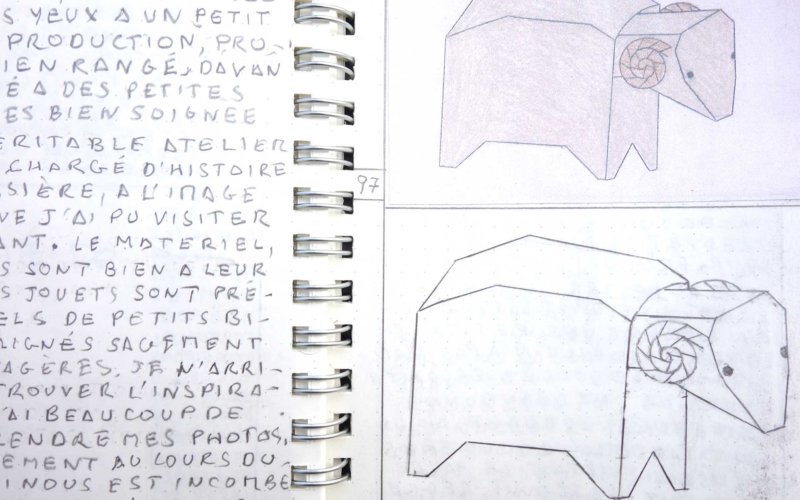 S YEUX A UN PETIT
PRODUCTION, PRO-
IEN RANGÉ, DAVAN
É A DES PETITES
ES BIEN SOIGNÉE
ERITABLE ATELIER
CHARGÉ D'HISTOIRE
SSIÈRE, A L'IMAGE
VE J'AI PU VISITER
ANT. LE MATERIEL,
S SONT BIEN A LEUR
S JOUETS SONT PRÉ-
ELS DE PETITS BI-
LIGNÉS SAGEMENT
AGÈRES. JE N'ARRI-
TROUVER L'INSPIRA-
'AI BEAUCOUP DE
LENDRE MES PHOTOS,
EMENT AU COURS DU-
I NOUS EST INCOMBE
97